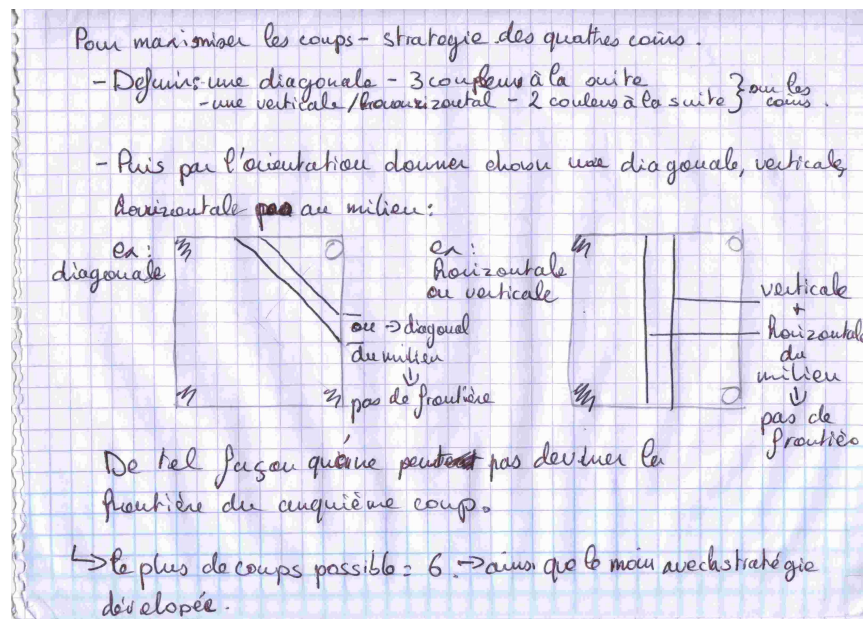 Pour maximiser les coups - strategie des quathes coins.
- Definir une diagonale - 3 couleurs à la suite
- une verticale / horizontal - 2 couleurs à la suite } sur les coins.
- Puis par l'orientation donner choisir une diagonale, verticale,
horizontale au milieu:
ex:
diagonale
ou -> diagonal
du milieu
↓
pas de frontière
ex:
horizontale
ou verticale
verticale
+
horizontale
du
milieu
↓
pas de
frontière
De tel façon pas deviner la
frontière du cinquième coup.
↳ le plus de coups possible = 6 -> ainsi que le moin avec stratégie
dévelopée.